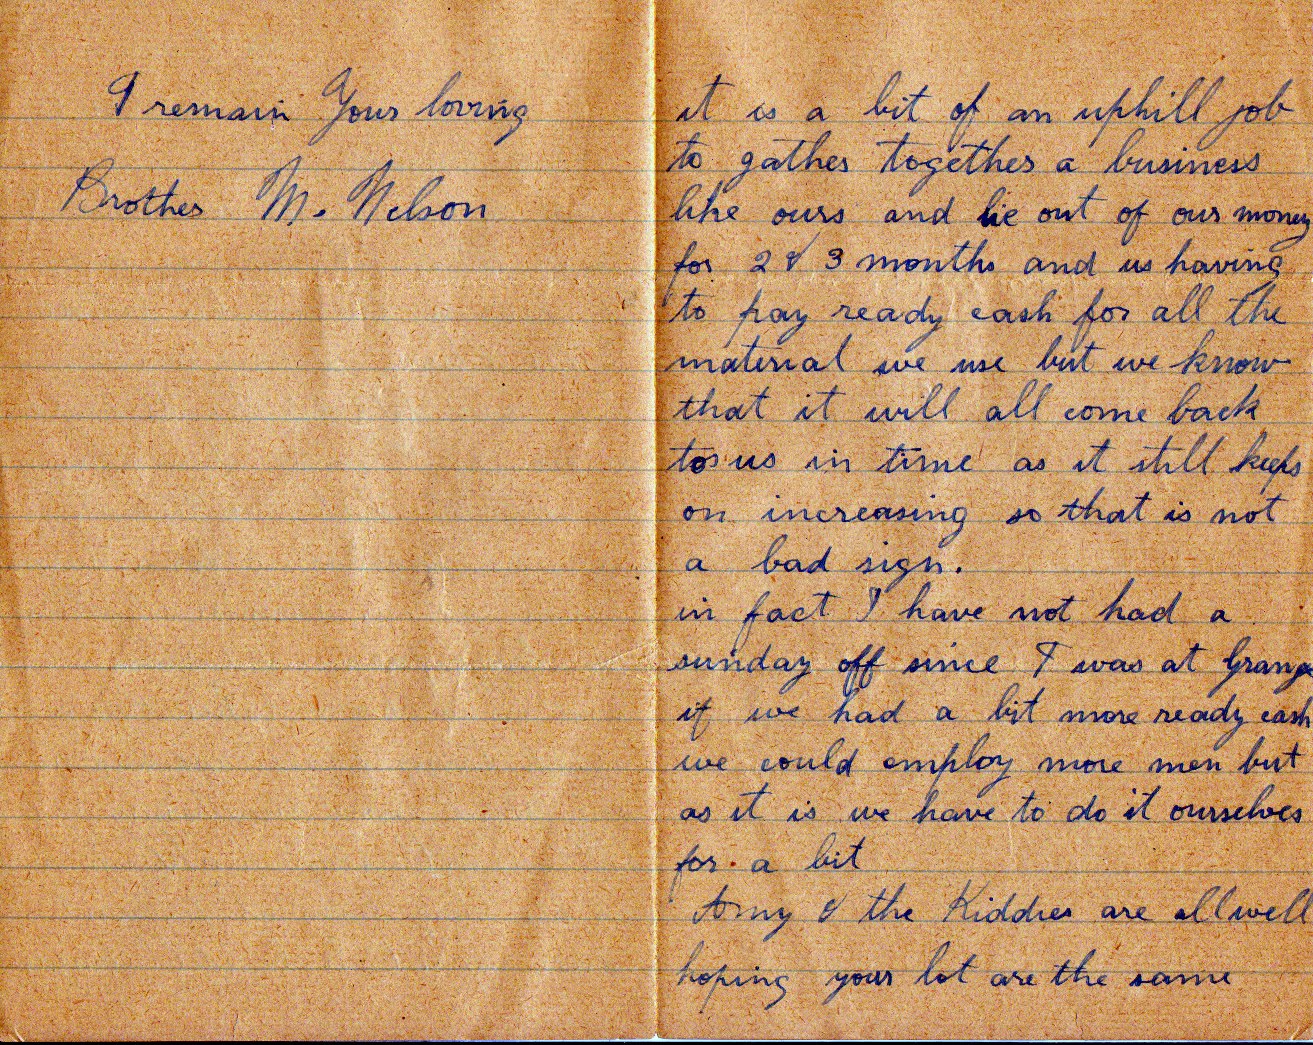 I remain Your loving
Brother M. Nelson
it is a bit of an uphill job
to gather together a business
like ours and lie out of our money
for 2 & 3 months and us having
to pay ready cash for all the
material we use but we know
that it will all come back
to us in time as it still keeps
on increasing so that is not
a bad sign.
in fact I have not had a
sunday off since I was at Grange
if we had a bit more ready cash
we could employ more men but
as it is we have to do it ourselves
for a bit
Amy & the Kiddies are all well
hoping your lot are the same